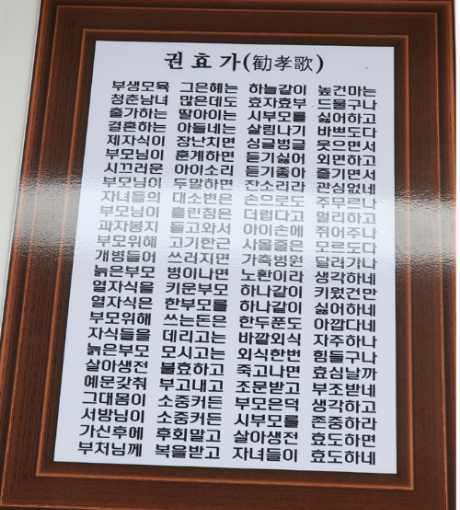 권효가(勸孝歌)
부생모육 그은혜는 하늘같이 높건마는
청춘남녀 많은데도 효자효부 드물구나
출가하는 딸아이는 시부모를 싫어하고
결혼하는 아들네는 살림나기 바쁘도다
제자식이 장난치면 싱글벙글 웃으면서
부모님이 훈계하면 듣기싫어 외면하고
시끄러운 아이소리 듣기좋아 즐기면서
부모님이 두말하면 잔소리라 관심없네
자녀들의 대소변은 손으로도 주무르나
부모님이 흘린침은 더럽다고 멀리하고
과자봉지 들고와서 아이손에 쥐어주나
부모위해 고기한근 사올줄은 모르도다
개병들어 쓰러지면 가축병원 달려가나
늙은부모 병이나면 노환이라 생각하네
열자식을 키운부모 하나같이 키웠건만
열자식은 한부모를 하나같이 싫어하네
부모위해 쓰는돈은 한두푼도 아깝다네
자식들을 데리고는 바깥외식 자주하나
늙은부모 모시고는 외식한번 힘들구나
살아생전 불효하고 죽고나면 효심날까
예문갖춰 부고내고 조문받고 부조받네
그대몸이 소중커든 부모은덕 생각하고
서방님이 소중커든 시부모를 존중하라
가신후에 후회말고 살아생전 효도하면
부처님께 복을받고 자녀들이 효도하네